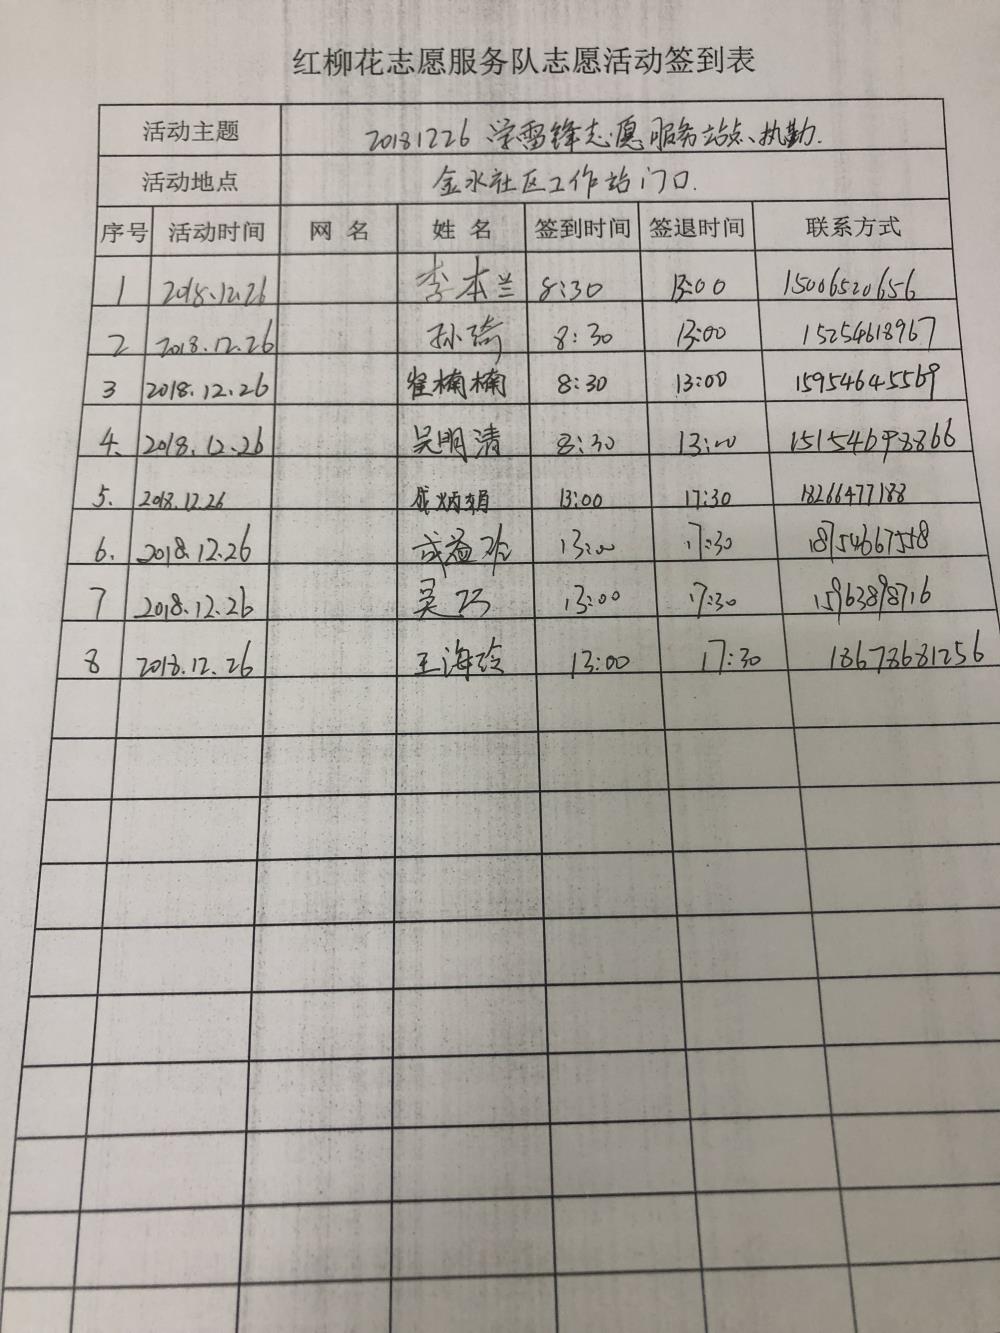 红柳花志愿服务队志愿活动签到表
活动主题 20181226 学雷锋志愿服务站点执勤.
活动地点 金水社区工作站门口.
序号 活动时间 网 名 姓 名 签到时间 签退时间 联系方式
1 2018.12.26 李本兰 8:30 13:00 15006520656
2 2018.12.26 孙琦 8:30 13:00 15254618967
3 2018.12.26 崔楠楠 8:30 13:00 15954645569
4. 2018.12.26 吴明清 8:30 13:00 15154698866
5. 2018.12.26 13:00 17:30 18266477188
6. 2018.12.26 成益 13:00 17:30 18754667558
7 2018.12.26 吴巧 13:00 17:30 15963898716
8 2018.12.26 王海玲 13:00 17:30 18678681256